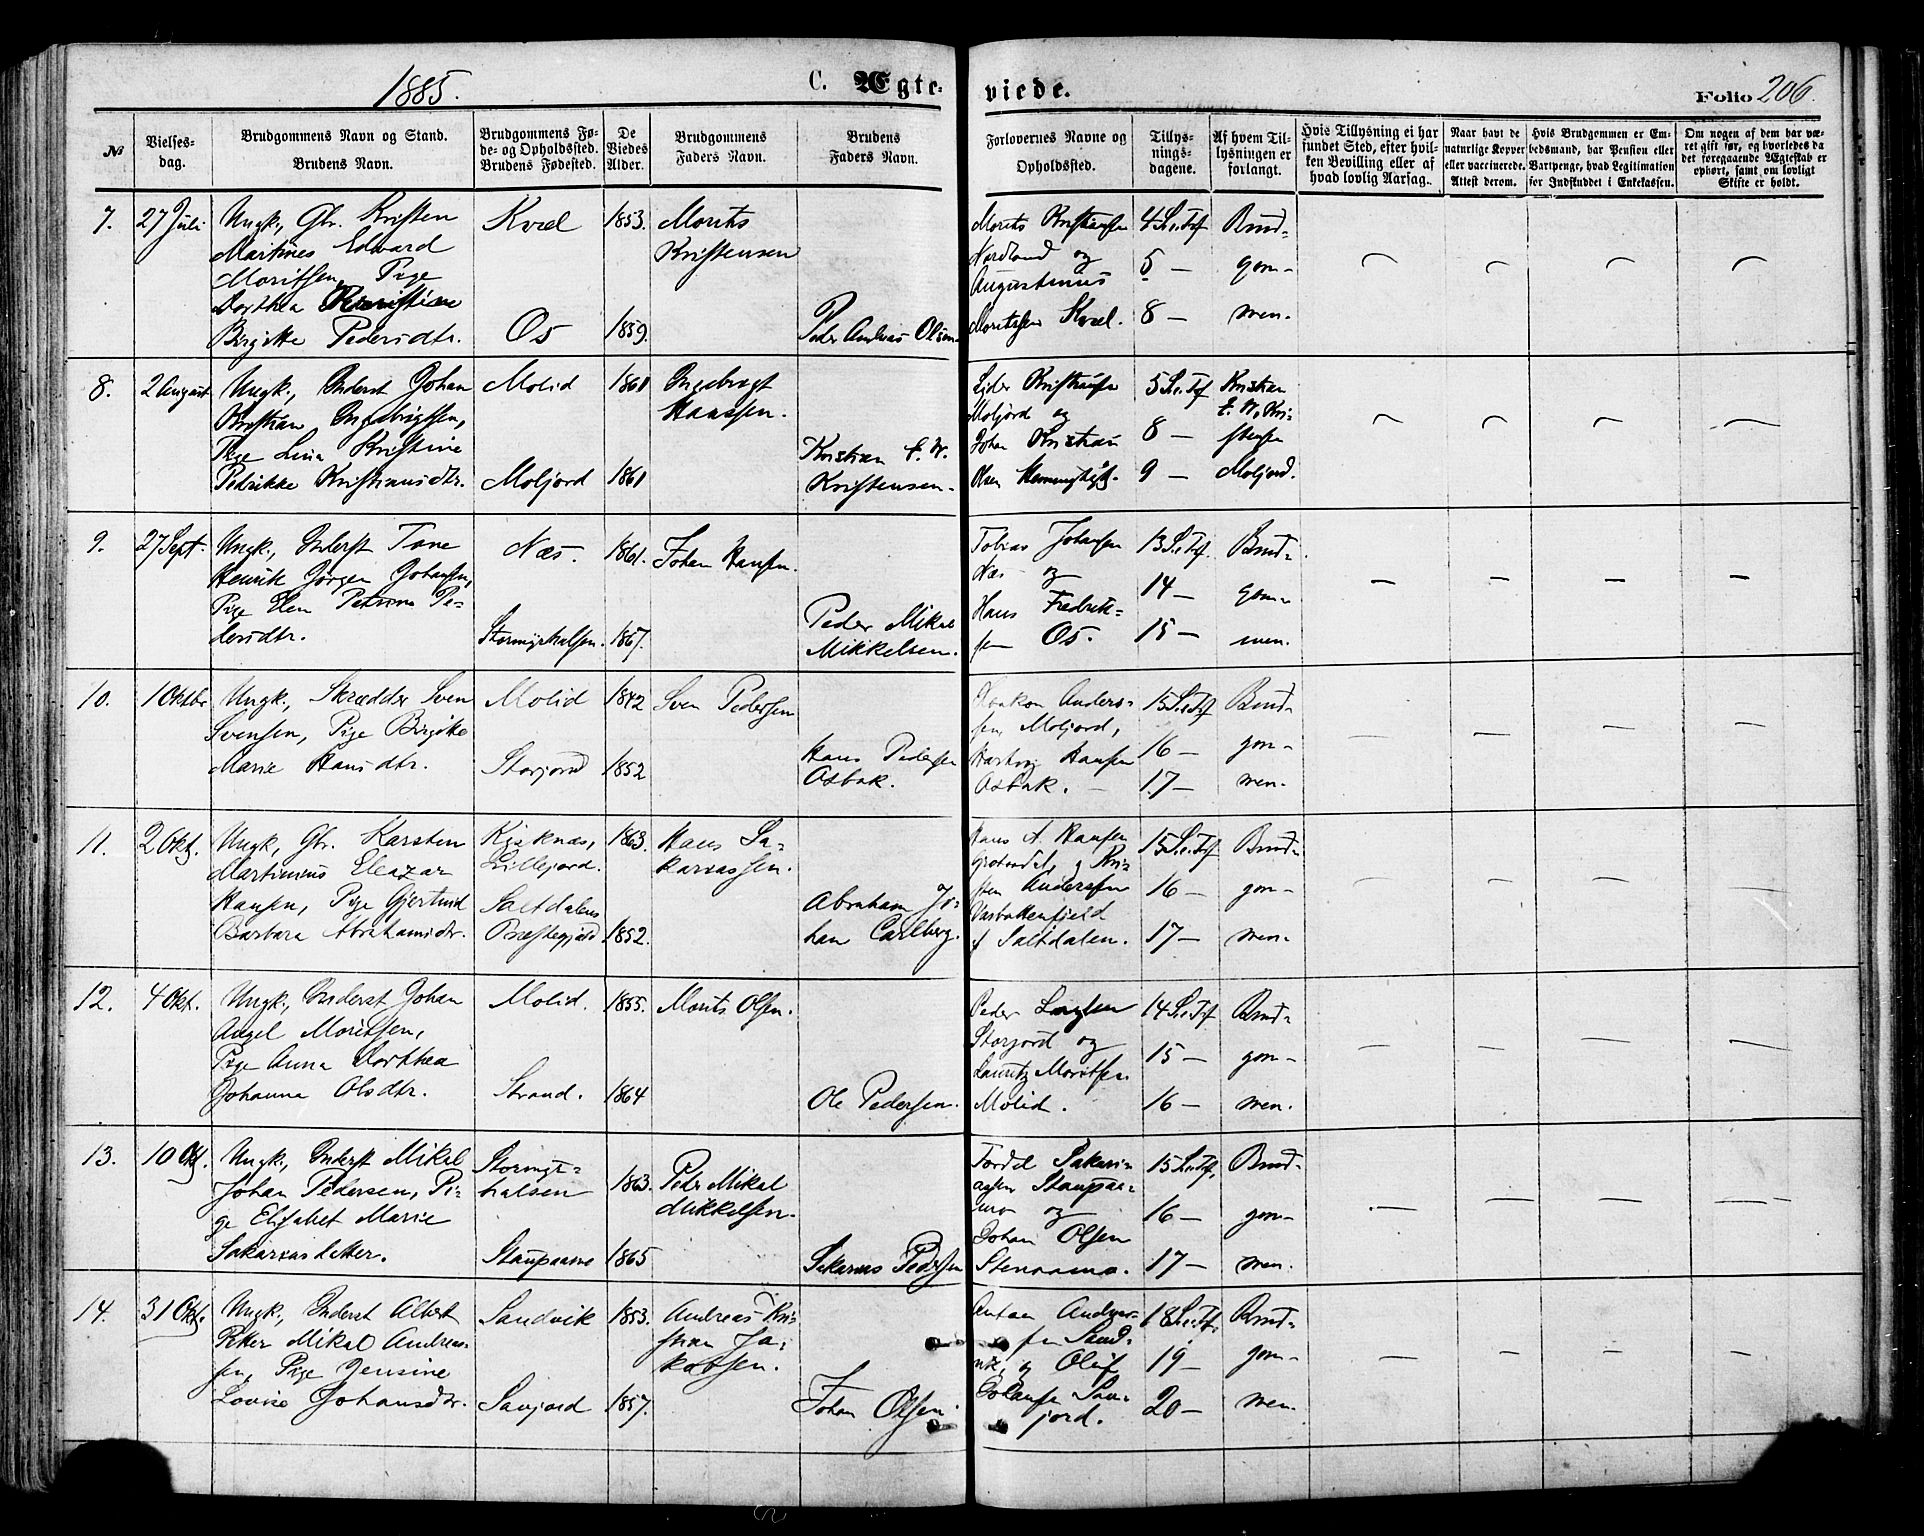 1885.
C. Ægte-
viede.
Folio 206.
№
Vielses-
dag.
Brudgommens Navn og Stand.
Brudens Navn.
Brudgommens Fø-
de- og Opholdssted.
Brudens Fødested.
De
Viedes
Alder.
Brudgommens
Faders Navn.
Brudens
Faders Navn.
Forlovernes Navne og
Opholdssted.
Tillys-
nings-
dagene.
Af hvem Til-
lysningen er
forlangt.
Hvis Tillysning ei har
fundet Sted, efter hvil-
ken Bevilling eller af
hvad lovlig Aarsag.
Naar havt de
naturlige Kopper
eller vaccinerede.
Attest derom.
Hvis Brudgommen er Em-
bedsmand, har Pension eller
Vartpenge, hvad Legitimation
for Indskuddet i Enkekassen.
Om nogen af dem har væ-
ret gift før, og hvorledes da
det foregaaende Ægteskab er
ophørt, samt om lovligt
Skifte er holdt.
7.
27 Juli
Ungk., Gbr. Kristen
Martines Edvard
Moritsen, Pige
Dorthea Kristine
Birgitte Pedersdtr.
Kvæl
Os
1853.
1859.
Morits
Kristensen
Peder Andreas Olsen
Morits Kristensen
Nordland og
Augustinus
Moritssen Kvæl.
4 S. e. Tref
5 —
8 —
Brud-
gom-
men.
8.
2 August
Ungk., Inderst Johan
Kristian Ingebrigtsen,
Pige Lina Kristine
Pedrikke Kristiansdtr.
Molid
Moljord
1861
1861
Ingebrigt
Hanssen.
Kristian E. W.
Kristensen.
Kristensen
Moljord og
Johan Kristian
Olsen
5 S. e. Tref
8 —
9 —
Kristian
E. W. Kri-
stensen
Moljord.
9.
27 Sept.
Ungk., Inderst Tone
Henrik Jørgen Johansen,
Pige Elen Petrina Pe-
dersdtr.
Næs.
Stormyrhalsen.
1861.
1867.
Johan Hansen.
Peder Mikal
Mikkelsen.
Tobias Johansen
Næs og
Hans Fredrik-
sen Os.
13 S. e. Tref.
14 —
15 —
Brud-
gom-
men.
10.
1 Oktbr
Ungk., Skrædder Sven
Svensen, Pige Birgitte
Marie Hansdtr.
Molid
Storjord
1842
1852
Sven Pedersen
Hans Pedersen
Osbak.
Haakon Anders-
sen, Moljord,
Hartvig Hansen
Osbak.
15 S. e. Tref
16 —
17 —
Brud-
gom-
men.
11.
2 Okt.
Ungk., Gbr. Karsten
Martinius Eleazar
Hansen, Pige Gjertrud
Barbara Abrahamsdtr.
Kjelknæs,
Lillejord.
Saltdalens
Præstegjeld
1863.
1852.
Hans Sa-
kariassen.
Abraham Jo-
han Carlberg.
Hans A. Hansen
Grotendal, og Kri-
sten Andersen
Vasbakkenfjeld
i Saltdalen.
15 S. e. Tref
16 —
17 —
Brud-
gom-
men.
12.
4 Okt.
Ungk., Inderst Johan
Angel Moritsen,
Pige Anna Dorthea
Johanna Olsdtr.
Molid.
Strand.
1855.
1864
Morits Olsen.
Ole Pedersen.
Peder
Storjord og
Lauritz Moritsen
Molid.
14 S. e. Tref
15 —
16 —
Brud-
gom-
men.
13.
10 Okt.
Ungk., Inderst Mikal
Johan Pedersen, Pi-
ge Elisabet Marie
Sakariasdatter.
Stormyr-
halsen
Staupaamo
1863.
1865
Peder Mikal
Mikkelsen.
Sakarias Pedersen
Tordel Sakari-
assen Staupaa-
mo og
Johan Olsen
Stenaamo.
15 S. e. Tref.
16 —
17 —
Brud-
gom-
men.
14.
31 Okt.
Ungk., Inderst Albert
Peter Mikal Andreas-
sen, Pige Jensine
Lovise Johansdtr.
Sandvik
Savjord
1853.
1857.
Andreas Kri-
stian Ja-
kobsen.
Johan Olsen.
Anton Andrea-
sen Sand-
vik, og Oluf
Johansen Sav-
jord.
18 S. e. Tref.
19 —
20 —
Brud-
gom-
men.